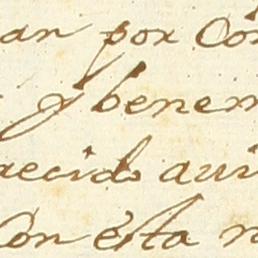 an por Con
y benem
aecido avi
Con esta n